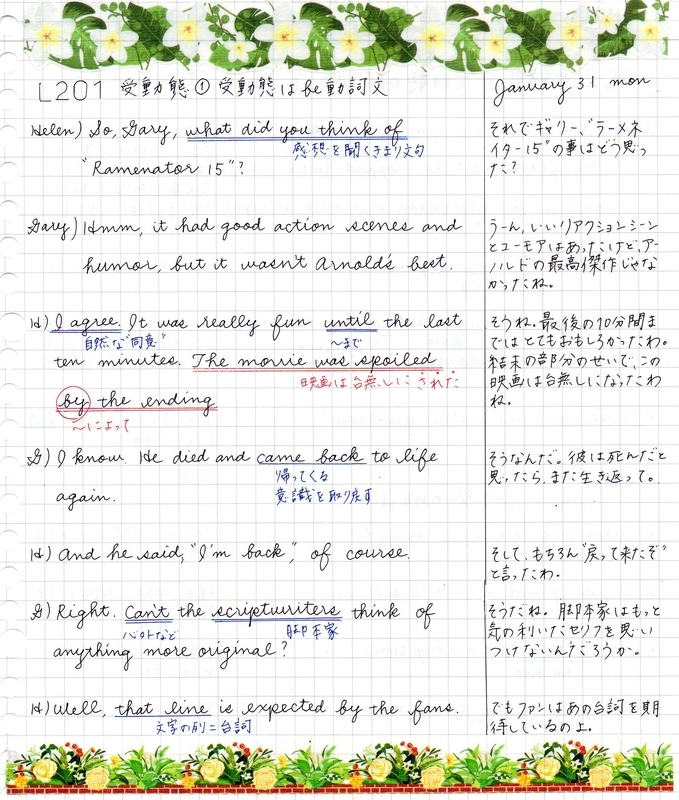 L201 受動態① 受動態はbe動詞文
January 31 mon
Helen) So, Gary, what did you think of
感想を聞くきまり文句
"Ramenator 15"?
それでギャリー、"ラーメネ
イター15"の事はどう思っ
た?
Gary) Hmm, it had good action scenes and
humor, but it wasn't Arnold's best.
うーん、いいアクションシーン
とユーモアはあったけど、アー
ノルドの最高傑作じゃな
かったね。
H) I agree. It was really fun until the last
自然な"同意"
〜まで
ten minutes. The movie was spoiled
映画は台無しにされた
by the ending
〜によって
そうね。最後の10分間ま
ではとてもおもしろかったわ。
結末の部分のせいで、この
映画は台無しになったわ
ね。
G) I know. He died and came back to life
帰ってくる
意識を取り戻す
again.
そうなんだ。彼は死んだと
思ったら、また生き返って。
H) And he said, "I'm back", of course.
そして、もちろん"戻って来たぞ"
と言ったわ。
G) Right. Can't the scriptwriters think of
脚本家
anything more original?
そうだね。脚本家はもっと
気の利いたセリフを思い
つけないんだろうか。
H) Well, that line is expected by the fans.
文字の列=台詞
でもファンはあの台詞を期
待しているのよ。